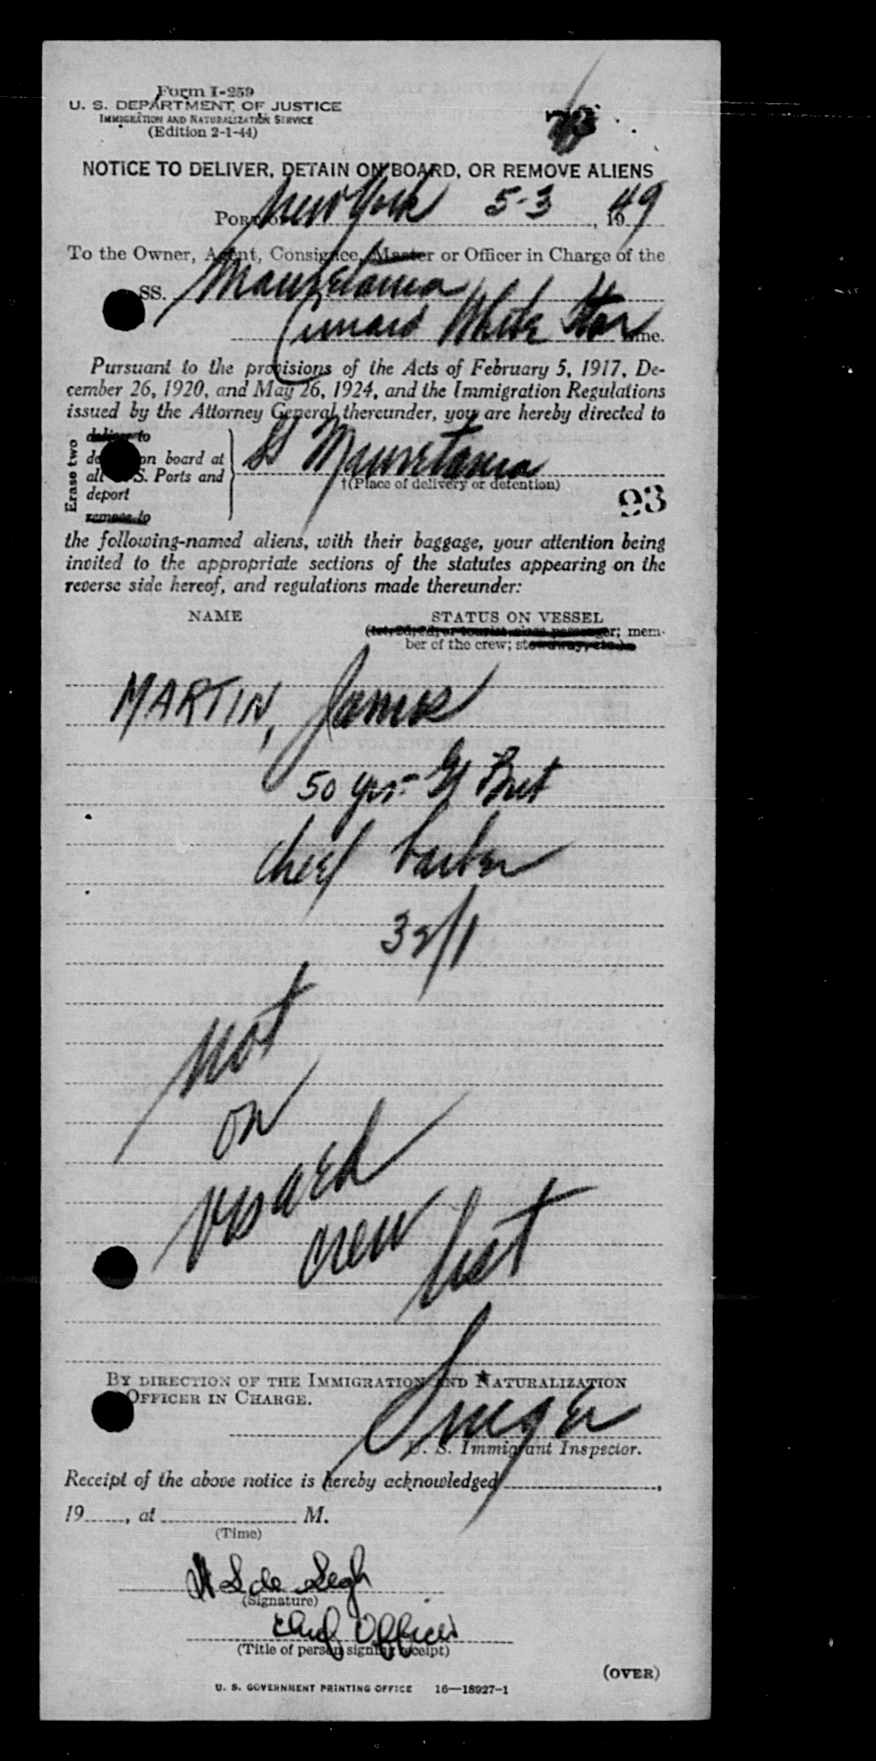 Form I-259
U. S. DEPARTMENT OF JUSTICE
IMMIGRATION AND NATURALIZATION SERVICE
(Edition 2-1-44)
NOTICE TO DELIVER, DETAIN ON BOARD, OR REMOVE ALIENS
PORT OF New York 5-3, 1949
To the Owner, Agent, Consignee, Master or Officer in Charge of the
SS. Mauretania
Cunard White Star Line.
Pursuant to the provisions of the Acts of February 5, 1917, De-
cember 26, 1920, and May 26, 1924, and the Immigration Regulations
issued by the Attorney General thereunder, you are hereby directed to
Erase two
deliver to
on board at
all U.S. Ports and
deport
remove to
SS Mauretania
†(Place of delivery or detention)
93
the following-named aliens, with their baggage, your attention being
invited to the appropriate sections of the statutes appearing on the
reverse side hereof, and regulations made thereunder:
NAME STATUS ON VESSEL
(1st, 2d, 3d, or tourist class passenger; mem-
ber of the crew; stowaway, etc.)
MARTIN, James
50 yrs - Gt Brit
chief barber
32/1
not
on
visaed
crew list
BY DIRECTION OF THE IMMIGRATION AND NATURALIZATION
OFFICER IN CHARGE.
Singer
U. S. Immigrant Inspector.
Receipt of the above notice is hereby acknowledged,
19, at M.
(Time)
(Signature)
Chief Officer
(Title of person signing receipt)
(OVER)
U. S. GOVERNMENT PRINTING OFFICE 16—18927-1